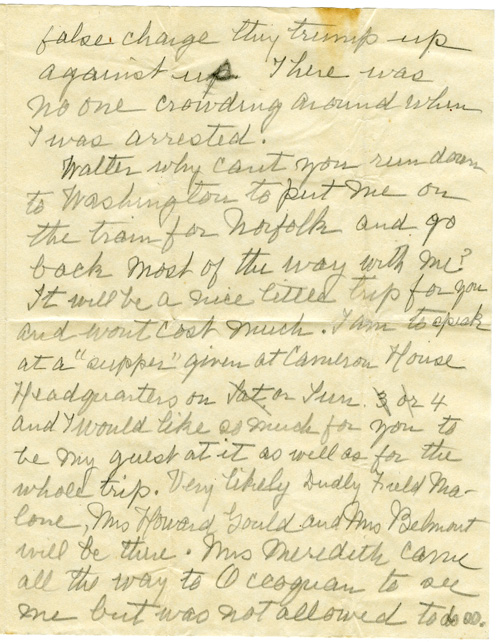 false charge they trump up
against us. There was
no one crowding around when
I was arrested.
Walter why cant you run down
to Washington to put me on
the train for Norfolk and go
back most of the way with me?
It will be a nice little trip for you
and wont cost much. I am to speak
at a "supper" given at Cameron House
Headquarters on Sat or Sun. 3 or 4
and I would like so much for you to
be my guest at it as well as for the
whole trip. Very likely Dudly Field Ma-
lone, Mrs Howard Gould and Mrs Belmont
will be there. Mrs Meredith came
all the way to Occoquan to see
me but was not allowed to do so.